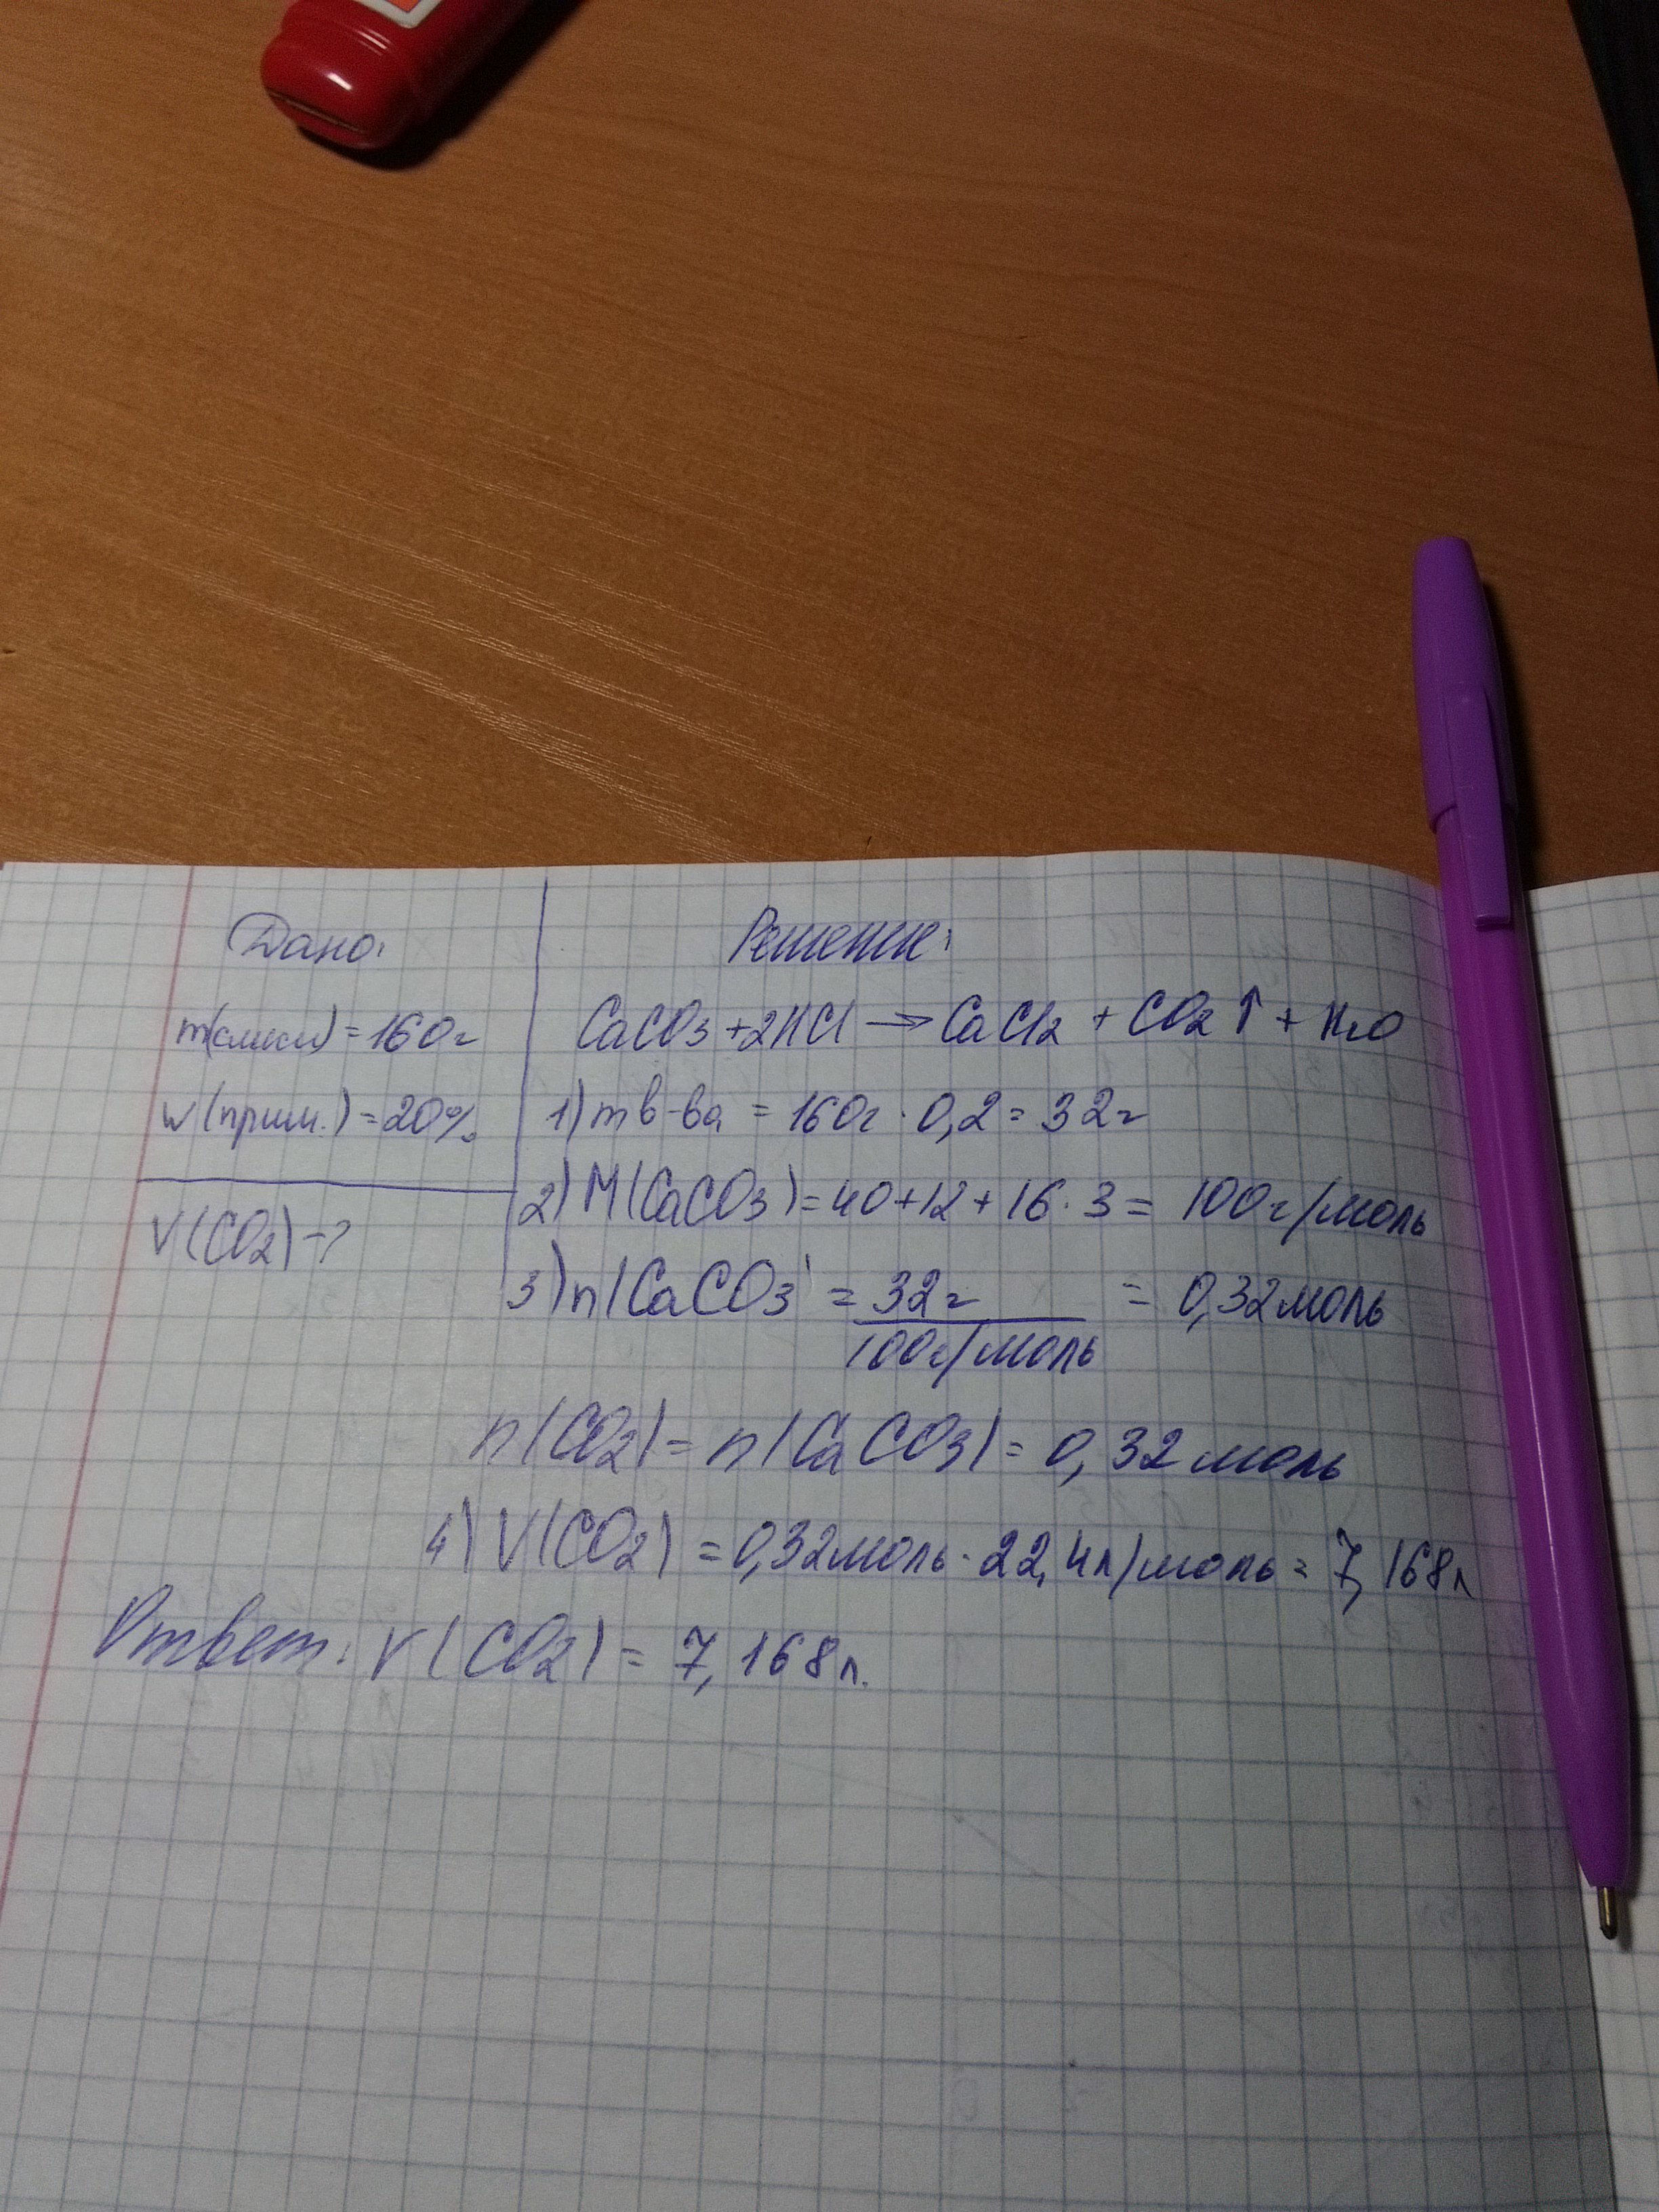 Дано:
m(смеси) = 160г
w(прим.) = 20%
V(CO2) - ?
Решение:
CaCO3 + 2HCl → CaCl2 + CO2 ↑ + H2O
1) m в-ва = 160г · 0,2 = 32г
2) M(CaCO3) = 40 + 12 + 16 · 3 = 100г/моль
3) n(CaCO3) = 32г = 0,32моль
100г/моль
n(CO2) = n(CaCO3) = 0,32моль
4) V(CO2) = 0,32моль · 22,4л/моль = 7,168л
Ответ: V(CO2) = 7,168л.